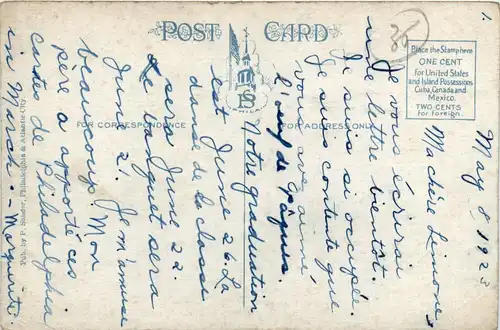 POST CARD
35
1.
Place the Stamp here
ONE CENT
for United States
and Island Possessions
Cuba, Canada and
Mexico.
TWO CENTS
for foreign.
FOR CORRESPONDENCE
FOR ADDRESS ONLY
PS
Pub. by P. Sander, Philadelphia & Atlantic City
May 8, 1923
Ma chère Simone,
Je vous écrirai
une lettre bientôt.
Je suis si occupée.
Je suis contente que
vous avez aimé
l'œuf de Pâques.
Notre graduation
est June 26. La
danse de la classe
sera June 22.
Le banquet sera
June 2. Je m'amuse
beaucoup. Mon
père a apporté ces
cartes de Philadelphia
in March. - Marguerite